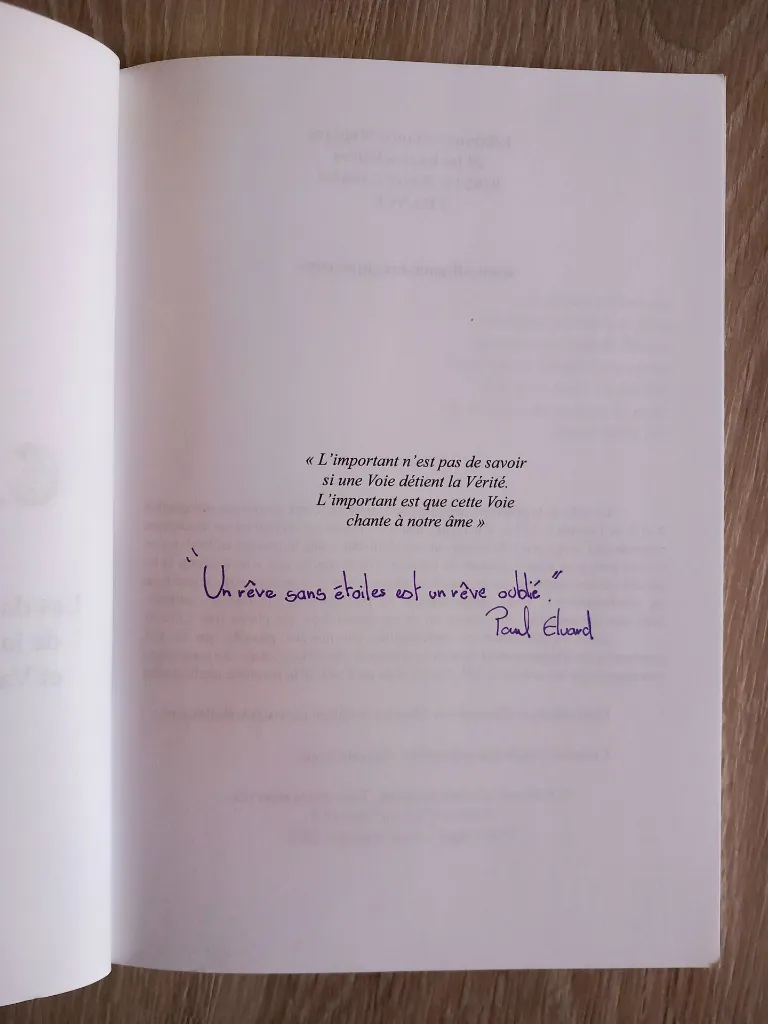 « L'important n'est pas de savoir
si une Voie détient la Vérité.
L'important est que cette Voie
chante à notre âme »
"Un rêve sans étoiles est un rêve oublié."
Paul Eluard